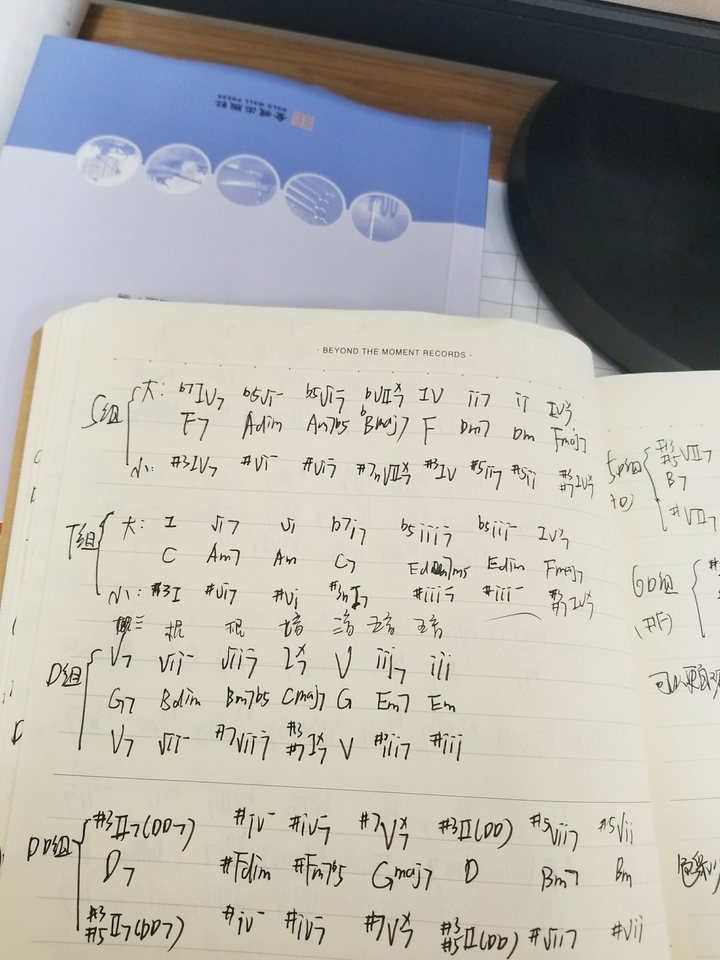 金城出版社
GOLD WALL PRESS
· BEYOND THE MOMENT RECORDS ·
S组
大: b7IV7 b5vi- b5vi-7 bVIIx7 IV ii7 ii IVx7
F7 Adim Am7b5 bBmaj7 F Dm7 Dm Fmaj7
小: #3IV7 #vi- #vi-7 #3IV #5ii7 #5ii #3#7IVx7
T组
大: I vi7 vi b7I7 b5iii-7 b5iii- IVx7
C Am7 Am C7 Edim Fmaj7
小: #3I #vi7 #vi #iii-7 #iii- #3#7IVx7
根 根 三音 五音 五音
D组
V7 vii- vii-7 Ix7 V iii7 iii
G7 Bdim Bm7b5 Cmaj7 G Em7 Em
V7 vii- #7vii-7 #3#7Ix7 V #iii7 #iii
DD组
#3II7(DD7) #iv- #iv-7 #7Vx7 #3II(DD) #5vii7 #5vii
D7 #Fdim #Fm7b5 Gmaj7 D Bm7 Bm
#3#5II7(DD7) #iv- #iv-7 #7Vx7 #3#5II(DD) #vii7 #vii
#3#5VII7
B7
#VII7
GD组
(#F)
可以更自